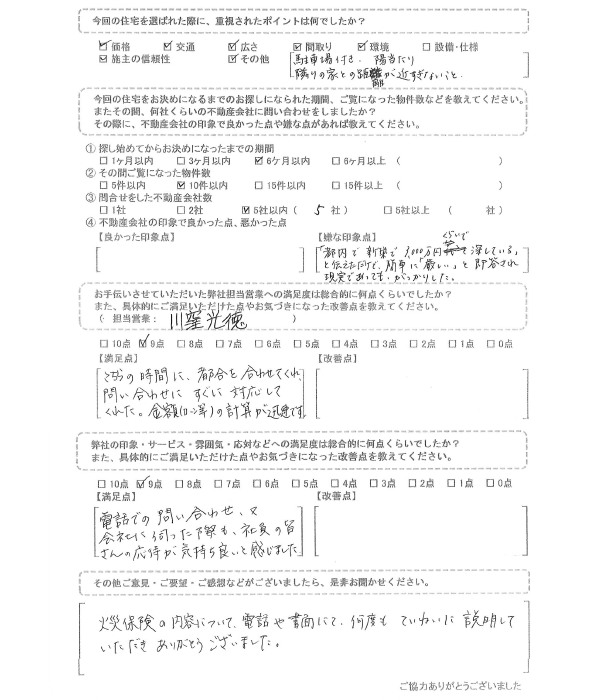 今回の住宅を選ばれた際に、重視されたポイントは何でしたか？
☑ 価格 ☑ 交通 ☑ 広さ ☑ 間取り ☑ 環境 □ 設備・仕様
☑ 施主の信頼性 ☑ その他
駐車場付き、陽当たり
隣りの家との距離が近すぎないこと。
今回の住宅をお決めになるまでのお探しになられた期間、ご覧になった物件数などを教えてください。
またその間、何社くらいの不動産会社に問い合わせをしましたか？
その際に、不動産会社の印象で良かった点や嫌な点があれば教えてください。
① 探し始めてからお決めになったまでの期間
□ 1ヶ月以内 □ 3ヶ月以内 ☑ 6ケ月以内 □ 6ケ月以上 （ ）
② その間ご覧になった物件数
□ 5件以内 ☑ 10件以内 □ 15件以内 □ 15件以上 （ ）
③ 問合せをした不動産会社数
□ 1社 □ 2社 ☑ 5社以内（ 5 社） □ 5社以上 （ 社）
④ 不動産会社の印象で良かった点、悪かった点
【良かった印象点】 【嫌な印象点】
「都内で新築で 1,000万円くらいで探している」
と伝えただけで、簡単に「厳しい」と即答され
現実であっても、がっかりした。
お手伝いさせていただいた弊社担当営業への満足度は総合的に何点くらいでしたか？
また、具体的にご満足いただけた点やお気づきになった改善点を教えてください。
（ 担当営業： 川窪光徳 ）
□ 10点 ☑ 9点 □ 8点 □ 7点 □ 6点 □ 5点 □ 4点 □ 3点 □ 2点 □ 1点 □ 0点
【満足点】 【改善点】
こちらの時間に、都合を合わせてくれ、
問い合わせに すぐに 対応して
くれた。金額(ローン等)の計算が迅速です。
弊社の印象・サービス・雰囲気・応対などへの満足度は総合的に何点くらいでしたか？
また、具体的にご満足いただけた点やお気づきになった改善点を教えてください。
□ 10点 ☑ 9点 □ 8点 □ 7点 □ 6点 □ 5点 □ 4点 □ 3点 □ 2点 □ 1点 □ 0点
【満足点】 【改善点】
電話での問い合わせ、又
会社に伺った際も、社員の皆
さんの応待が気持ち良いと感じました
その他ご意見・ご要望・ご感想などがございましたら、是非お聞かせください。
火災保険の内容について、電話や書面にて、何度も ていねいに 説明して
いただき ありがとうございました。
ご協力ありがとうございました